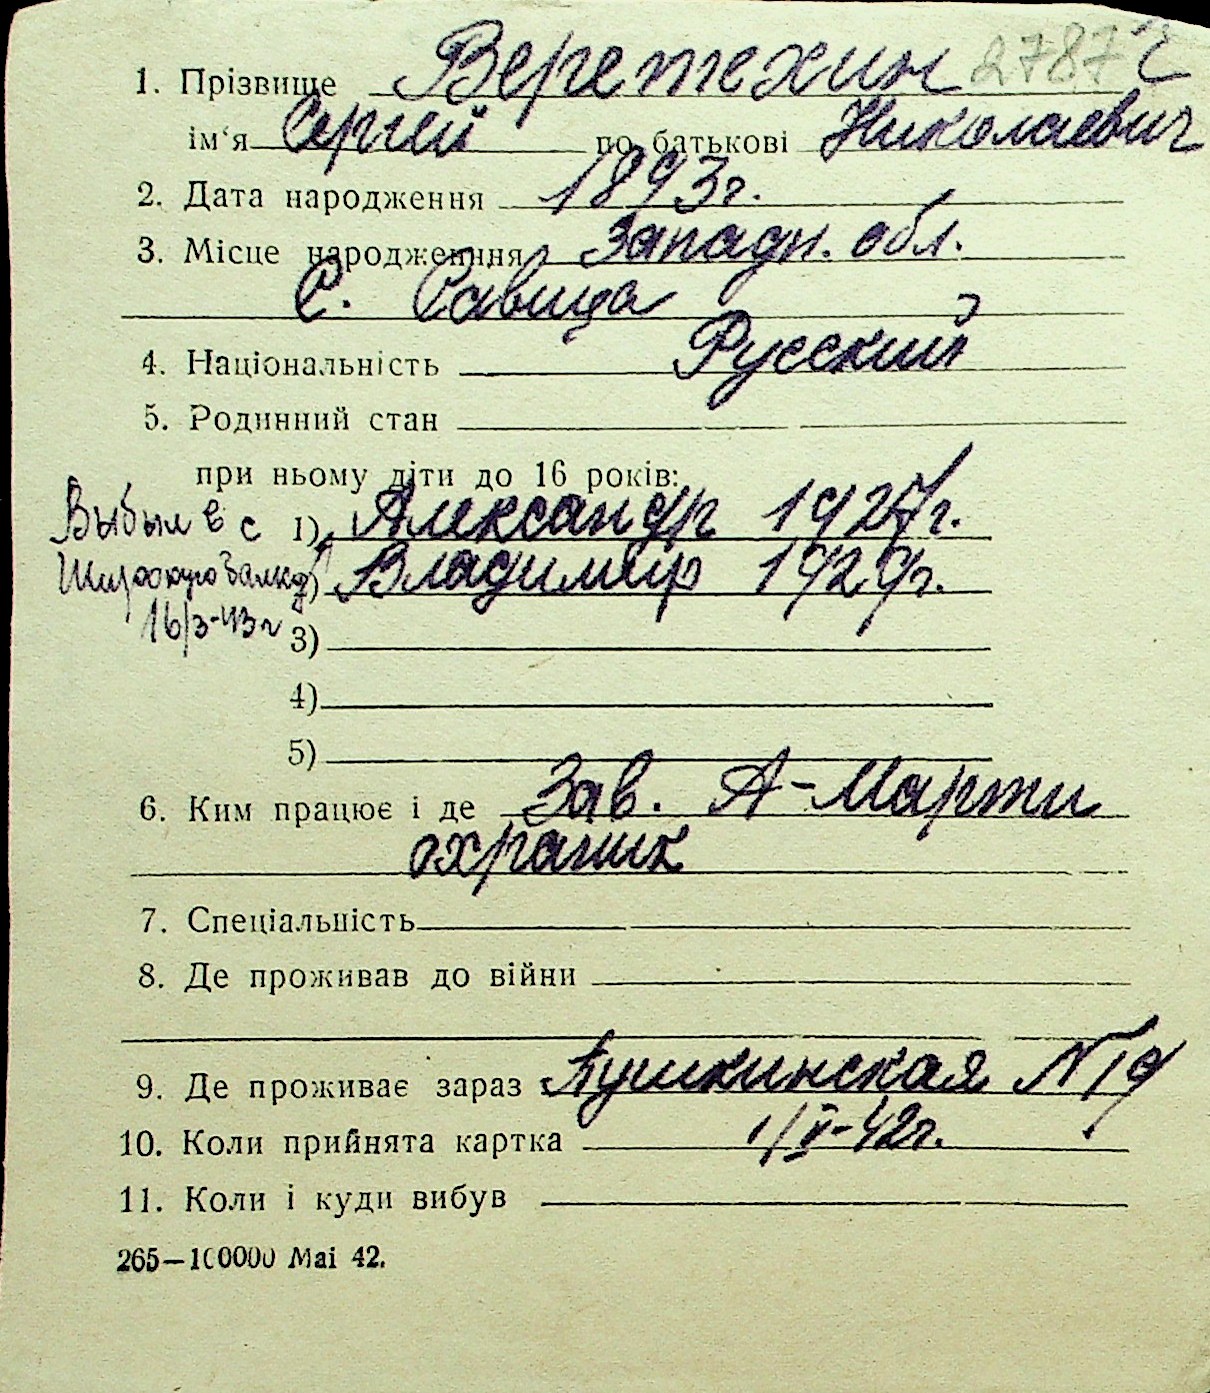 1. Прізвище Веретехин 2787
ім‘я Сергей по батькові Николаевич
2. Дата народження 1893г.
3. Місце народженння Западн. обл.
С. Савица
4. Національність Русский
5. Родинний стан
при ньому діти до 16 років:
Выбыл в с 1) Александр 1927г.
2) Владимир 1929г.
16/3-43г 3)
4)
5)
6. Ким працює і де Зав. А-Марти
охраник
7. Спеціальність
8. Де проживав до війни
9. Де проживає зараз Пушкинская N 19
10. Коли прийнята картка 1/V-42г.
11. Коли і куди вибув
265—100000 Mai 42.